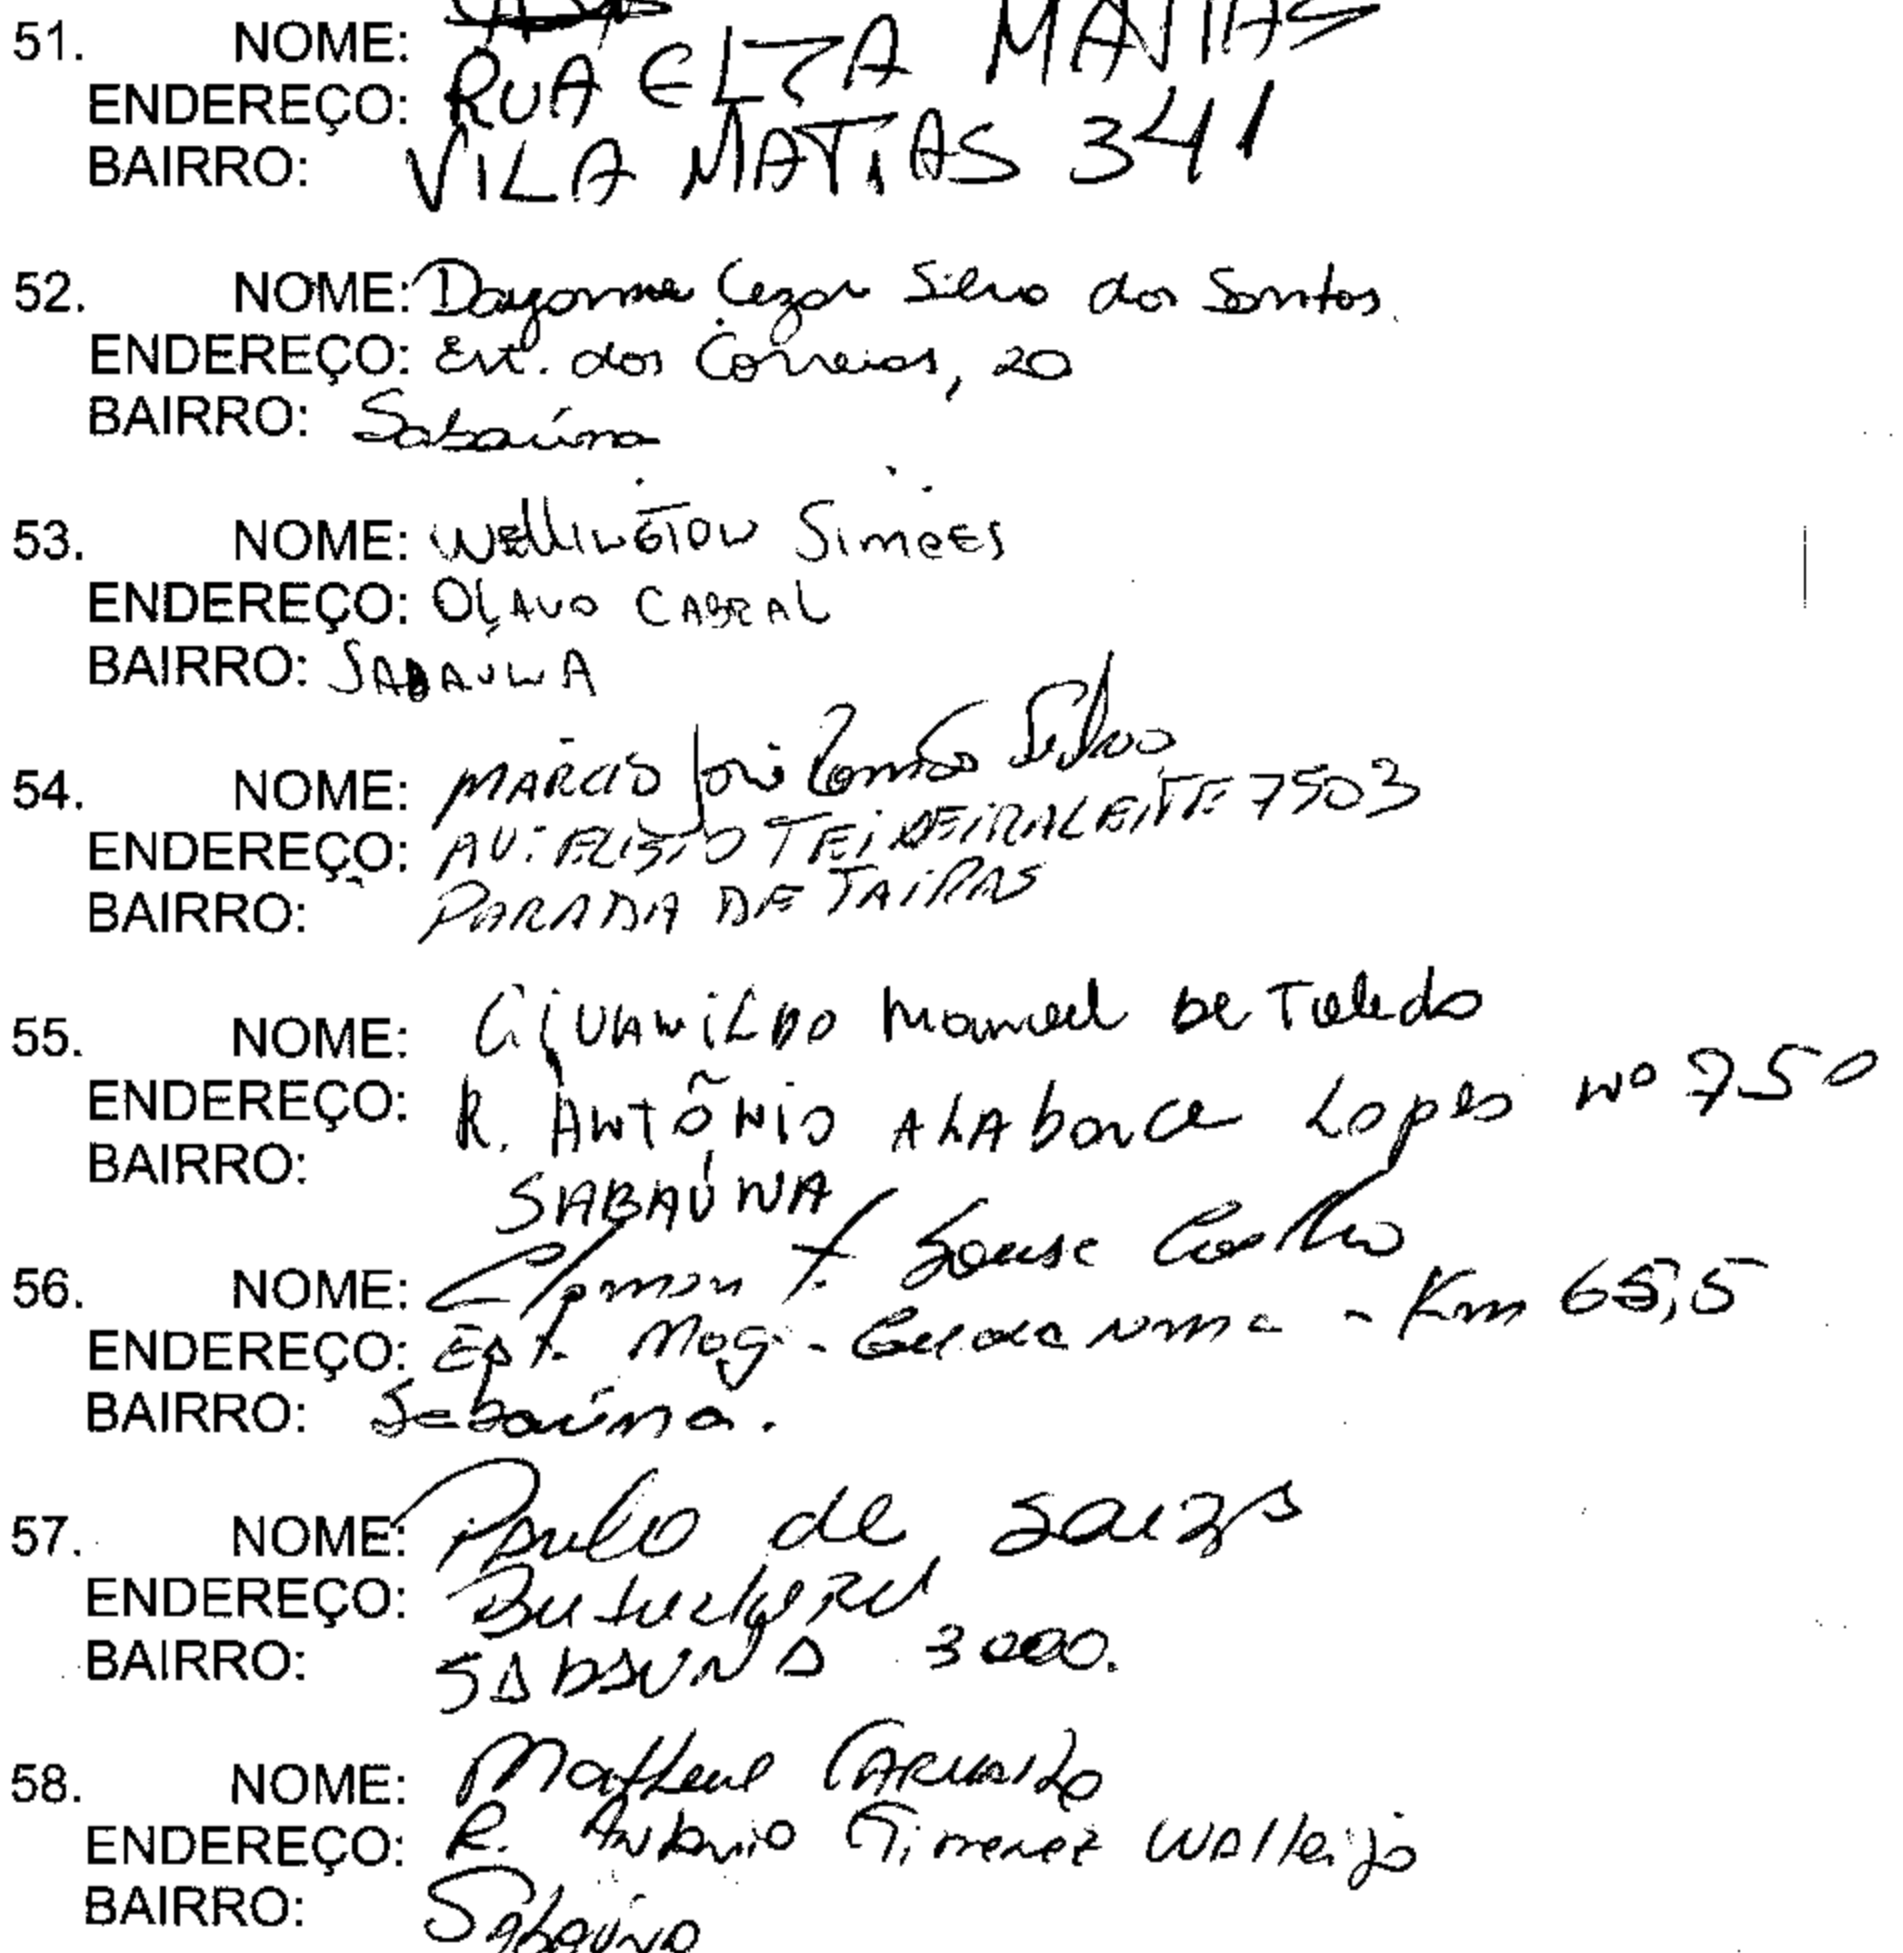 51. NOME:
ENDEREÇO: RUA ELZA MATIAS
BAIRRO: VILA MATIAS 341
52. NOME: Dayorme Cezar Silva dos Santos
ENDEREÇO: Est. dos Correias, 20
BAIRRO: Sabaúna
53. NOME: WELLINGTON SIMÕES
ENDEREÇO: OLAVO CABRAL
BAIRRO: SABAÚNA
54. NOME: MARCIO José
ENDEREÇO: AV: ELISIO TEIXEIRA LEITE 7503
BAIRRO: PARADA DE TAIPAS
55. NOME: GIVANILDO Manoel DE Toledo
ENDEREÇO: R. ANTÕNIO ALAbarce Lopes nº 750
BAIRRO: SABAÚNA
56. NOME: Souse
ENDEREÇO: Est. Mogi - - Km 65,5
BAIRRO: Sabaúna.
57. NOME: Paulo de Souza
ENDEREÇO:
BAIRRO: SABAUNA 3000.
58. NOME: Matheus CARVALHO
ENDEREÇO: R. Antonio Gimenez Walleijo
BAIRRO: Sabaúna